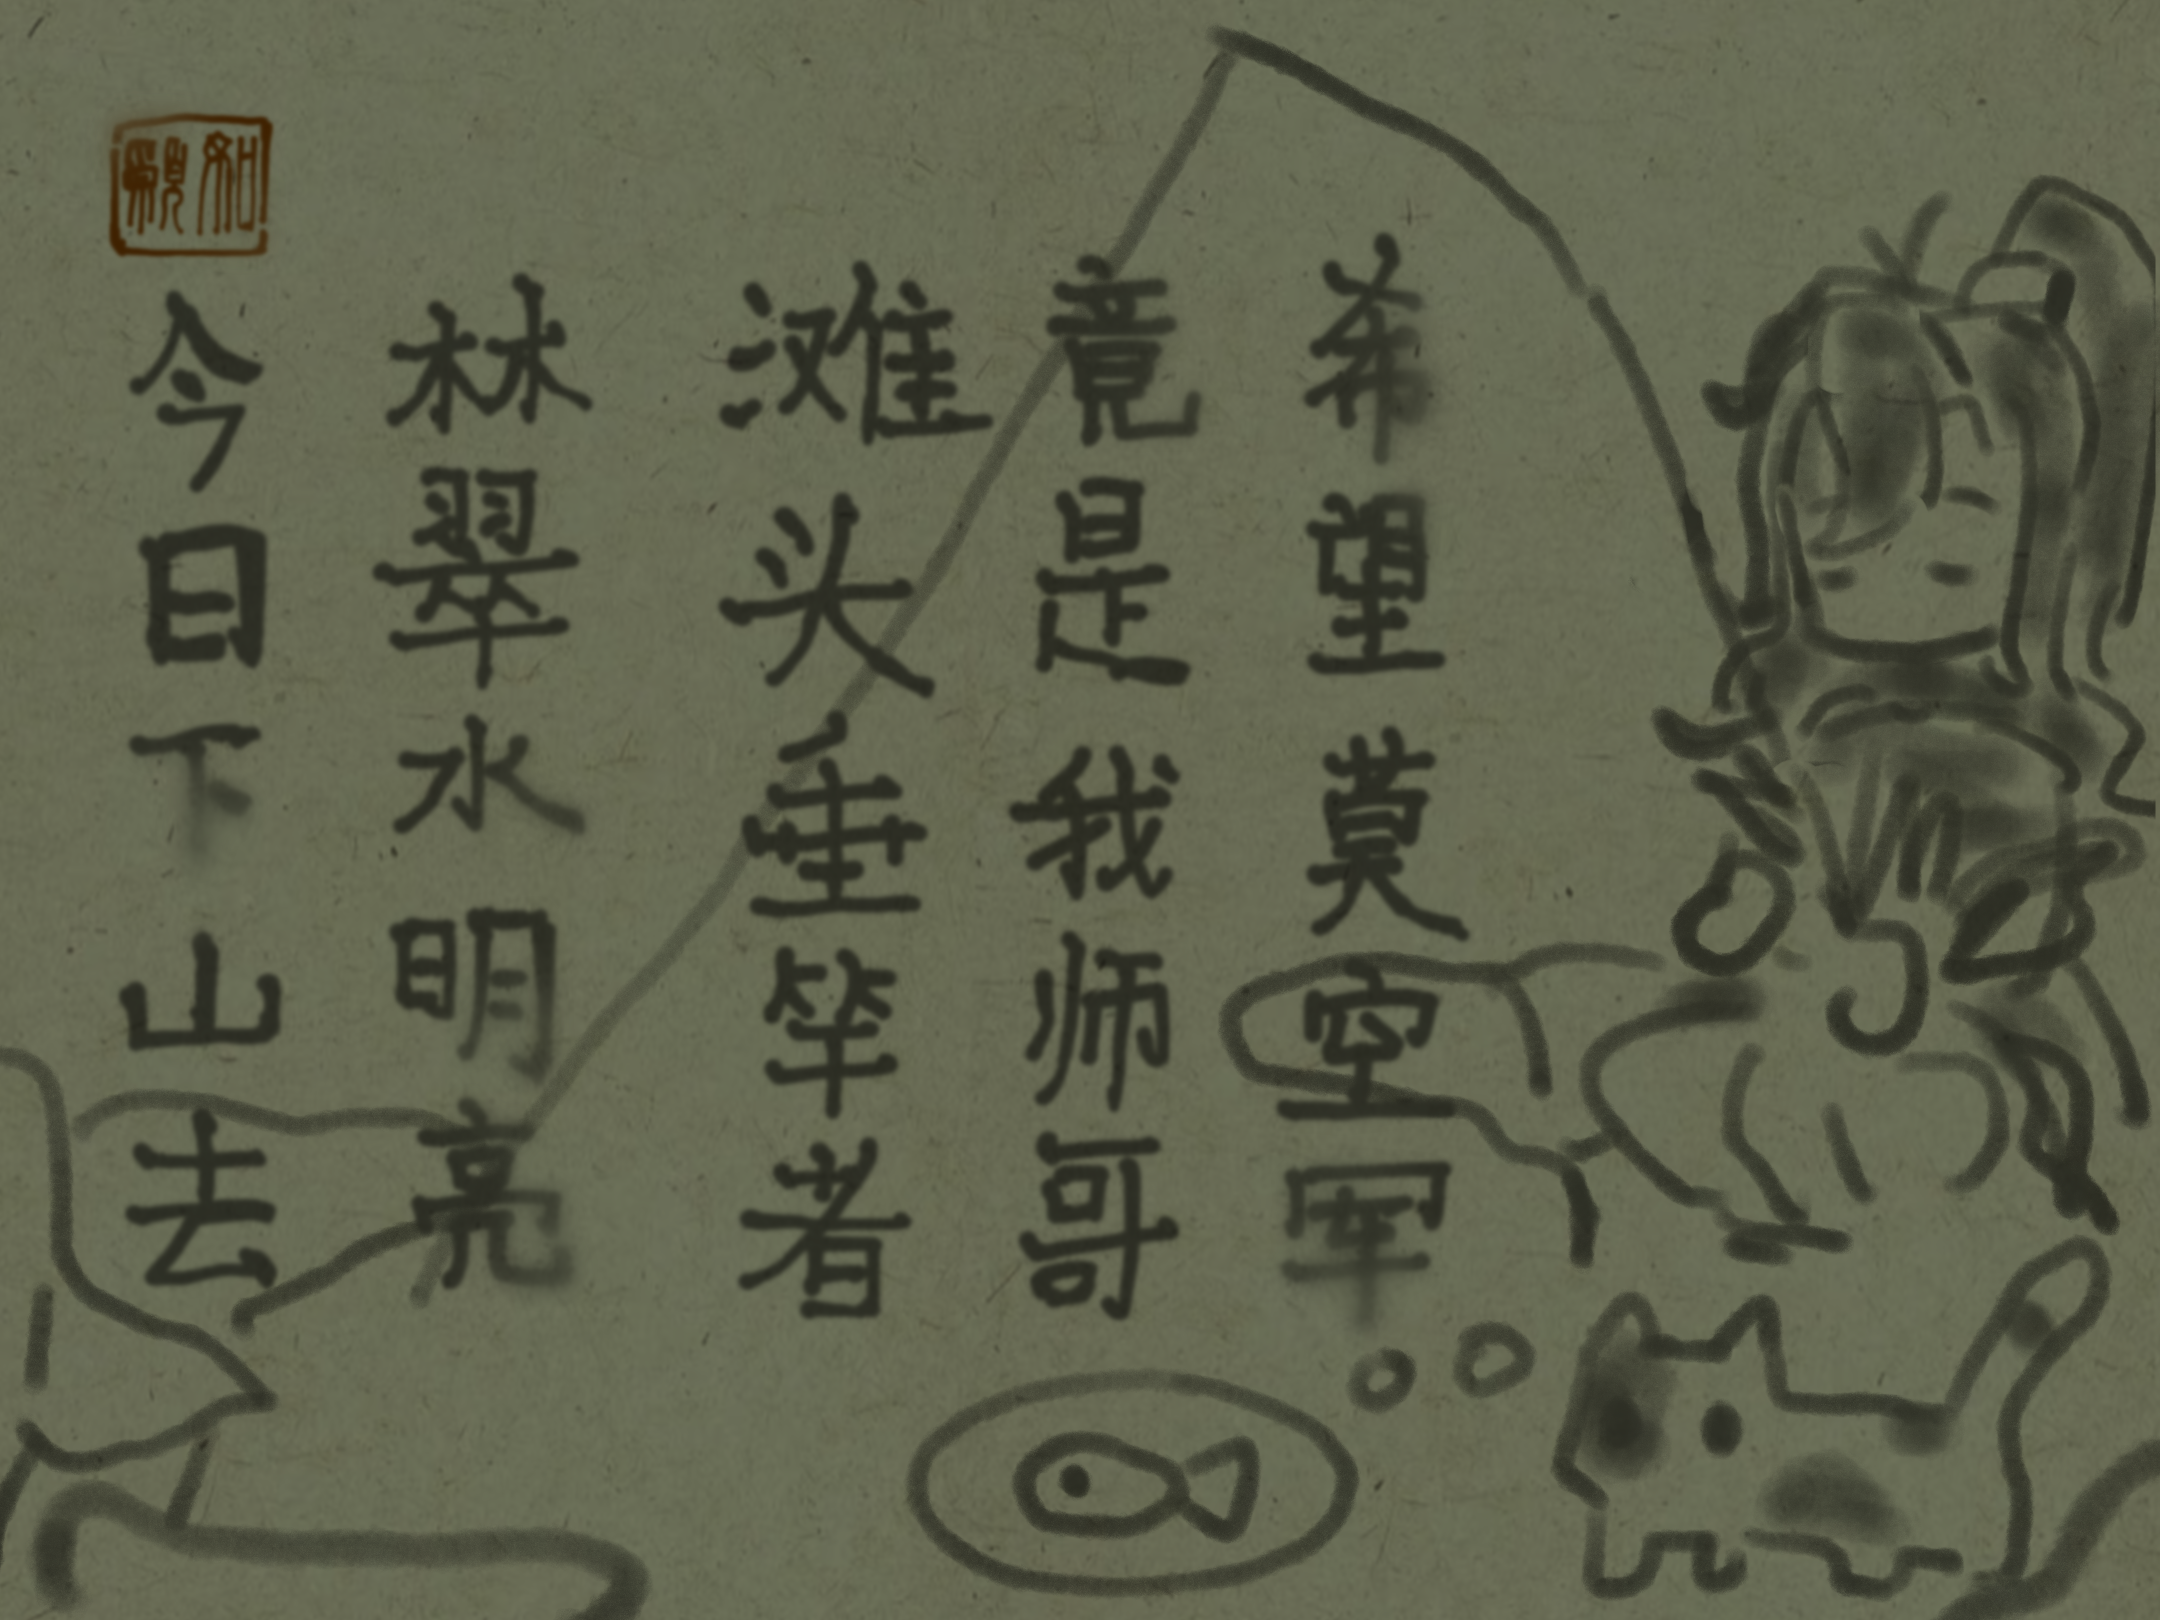 今日下山去
林翠水明亮
滩头垂竿者
竟是我师哥
希望莫空军